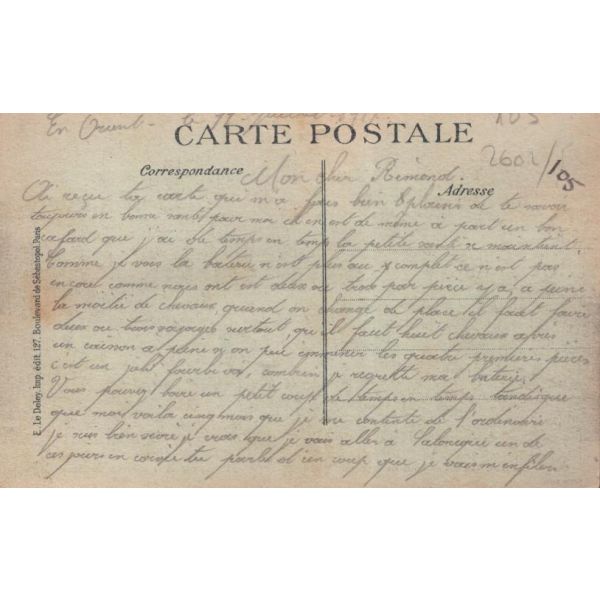 En Orient - le
105
CARTE POSTALE
2602/5
105
Correspondance
Mon cher Rémond.
Adresse
Ai reçu ta carte qui m'a fais bien plaisir de te savoir
toujours en bonne santé pour moi il en est de même à part un bon
cafard que j'ai de temps en temps la petite santé se maintient
comme je vois la batterie n'est plus au complet ce n'est pas
encore comme nous ont est deux ou trois par pièce y a a peine
la moitié de chevaux quand on change de place il faut faire
deux ou trois voyages surtout qu'il faut huit chevaux après
un caisson a peine on peu emmener les quatre premières pièces
c'est un joli fourbi va, combien je regrette ma batterie
Vous pouvez boire un petit coup de temps en temps tandisque
que moi voila cinq mois que je me contente de l'ordinaire
je suis bien je crois que je vais aller a Salonique un de
ces jours en corvée tu parles d'un coup que je vais m'enfiler
E. Le Deley, Imp. édit. 127, Boulevard de Sébastopol, Paris